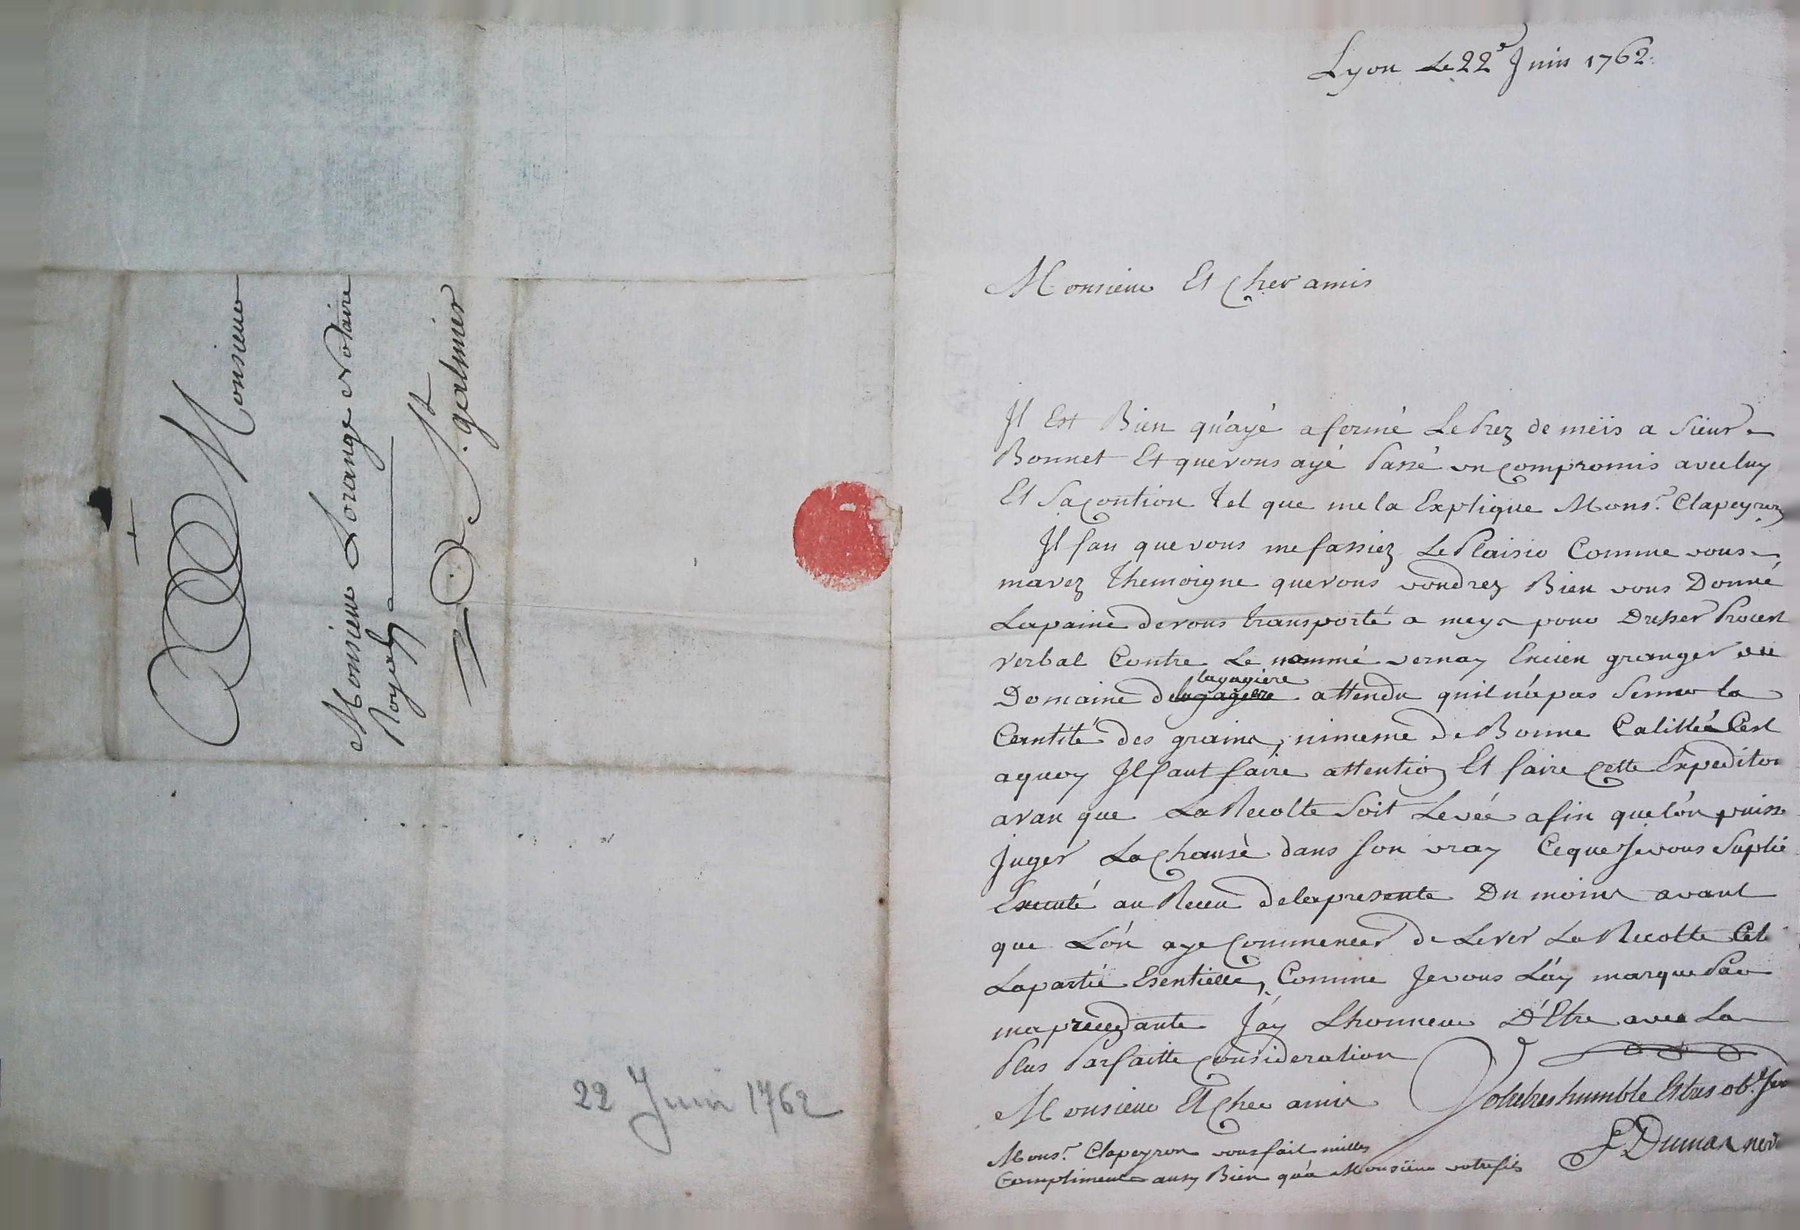 Monsieur
Monsieur Lorange Notaire
Royal
A St. galmier
22 Juin 1762
Lyon Le 22e Juin 1762.
Monsieur Et Cher amis
Il Est Bien qu'ayé afermé Le Prez de meïs a Sieur
Bonnet Et que vous ayé Passé un Compromis avec luy
Et Sa Contion Tel que me la Explique Monsr. Clapeyron
Il fau que vous me fassiez Le Plaisir Comme vous
mavez Themoigne que vous voudrez Bien vous Donné
La paine de vous transporté a meys pour Dresser Procest
verbal Contre Le nommé vernay Encien granger au
Domaine de lagagiere attendu quil n'a pas Semer la
Cantité des grains, ni meme de Bonne Calitté Cest
a quoy Il faut faire attention Et faire Cette Expeditor
avan que La Recolte Soit Levée afin que lon puisse
Juger La Chausè dans Son vray Ce que Je vous Suplié
Executé au Receu de la presente Du moins avant
que L'on aye Commencer de Lever La Recolte Cet
La partié Esentielle, Comme Je vous L'ay marque Par
ma precedante J'ay L'honneur D'Etre avec La
Plus Parfaitte Consideration
Monsieur Et Cher amis Votre tres humble Et tres obt. Ser
Monsr. Clapeyron vous fait milles
Compliments ausy Bien qu'a Monsieur votre fils
Dumas